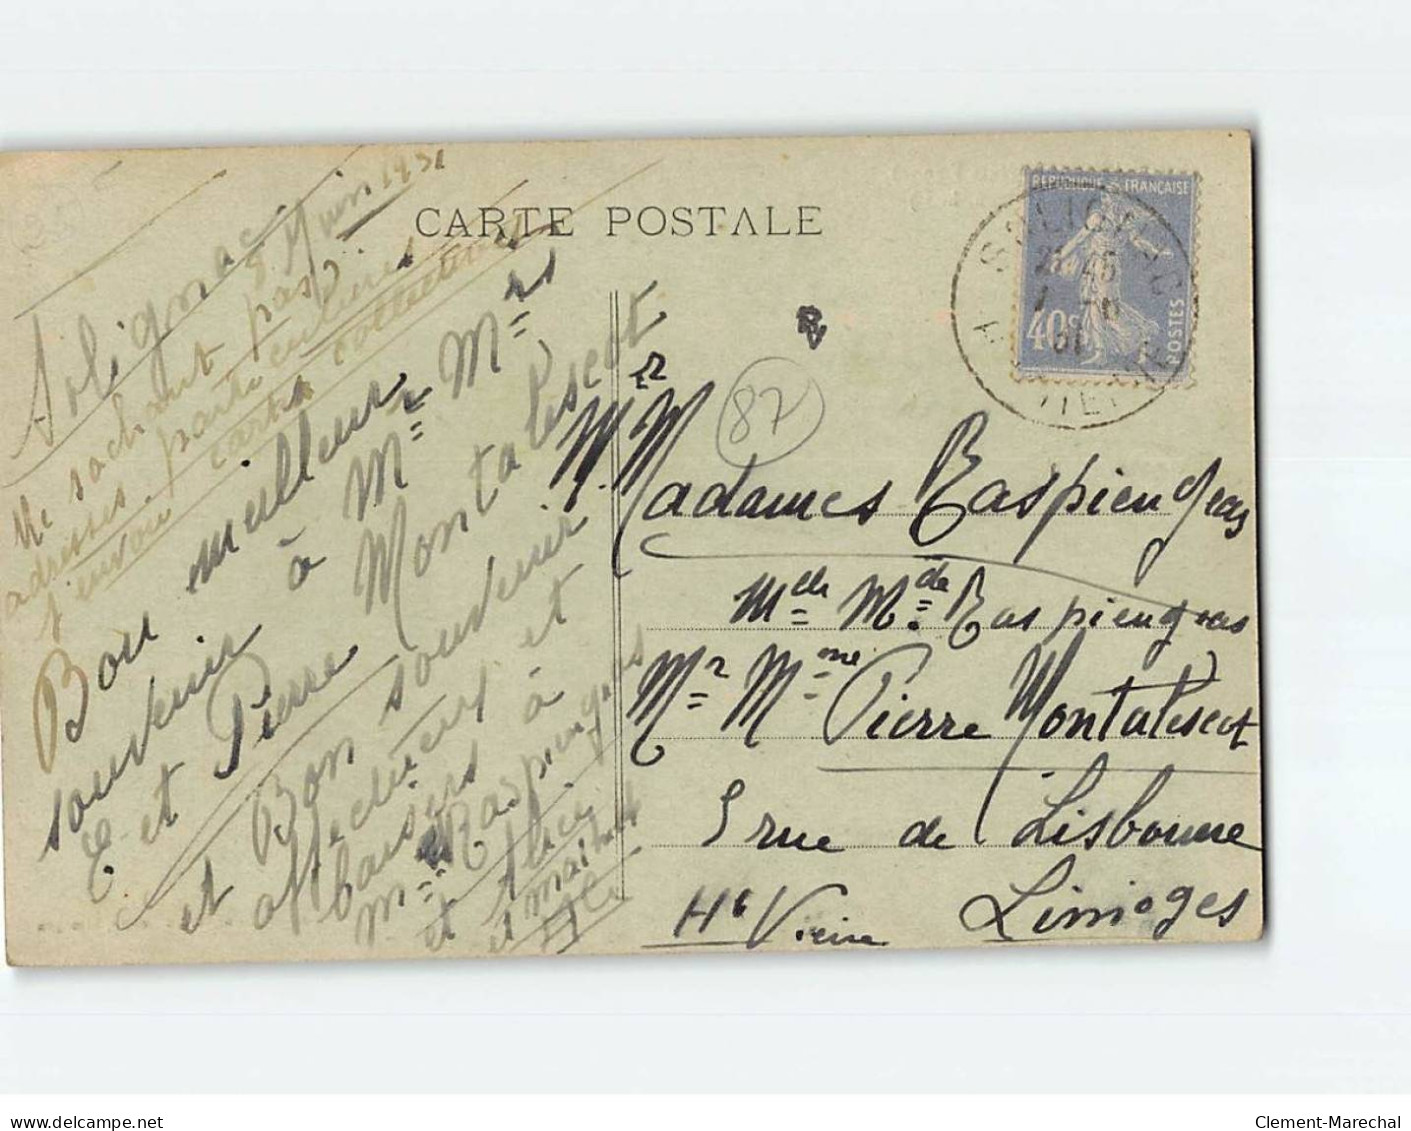 CARTE POSTALE
Solignac
8 Juin 1931
Ne sachant pas
adresses particulières
j'envoie carte collective
Bon meilleur
souvenir à Mr Mrs
E et Pierre Montalescot
et Bon souvenir
affectueux et
baisers à
Raspiengeas
et Alice
et
REPUBLIQUE FRANÇAISE
40c
POSTES
SOLIGNAC
VIENNE
87
Madames Raspiengeas
Mdlle Mde Raspiengeas
Mr Mme Pierre Montalescot
5 rue de Lisbonne
Hte Vienne Limoges
delcampe.net
Clement-Marechal